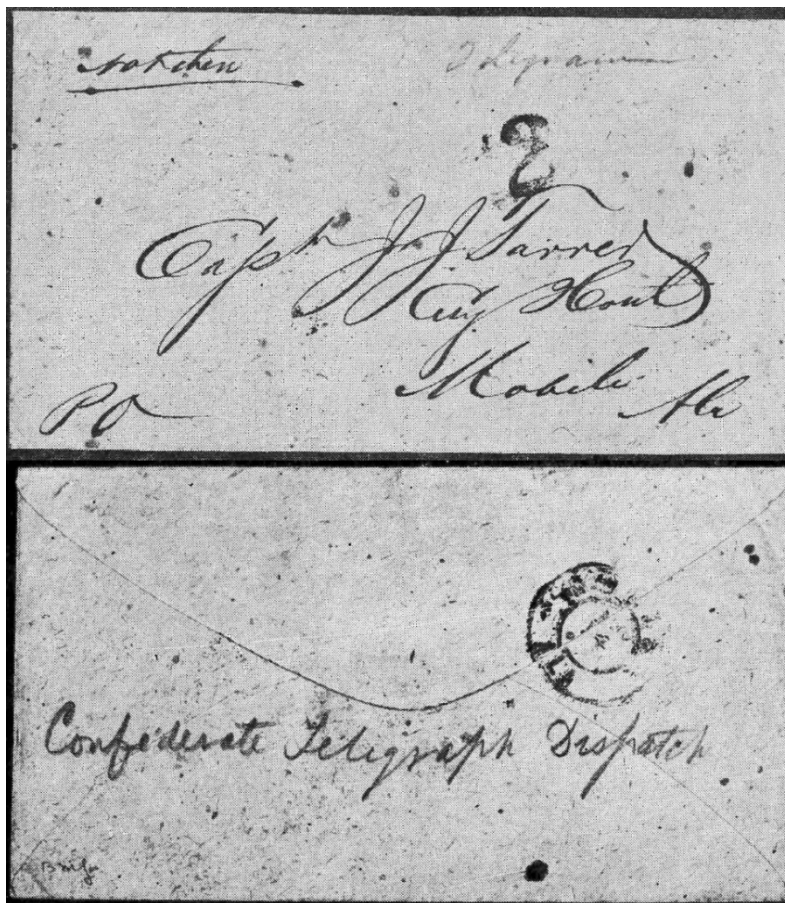 Telegram
2
Capt J J Tarrer
City Hout
Mobile Ala
PO
Confederate Telegraph Dispatch